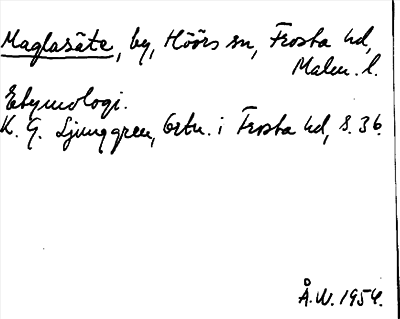 Maglasäte, by, Höörs sn, Frosta hd,
Malm. l.
Etymologi.
K. G. Ljunggren, Ortn. i Frosta hd, s. 36.
Å.W. 1954.